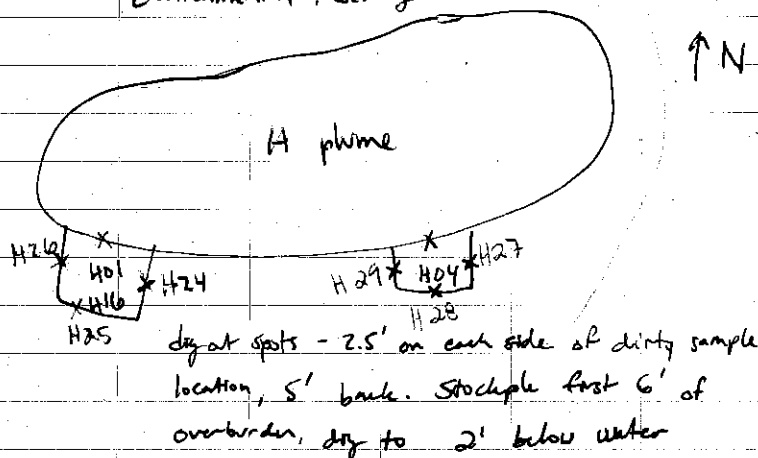 ↑ N
H plume
H26 H01 H24 H29 H04 H27
H16
H25 H28
dig at spots - 2.5' on each side of dirty sample
location, 5' back. Stockpile first 6' of
overburden, dig to 2' below water